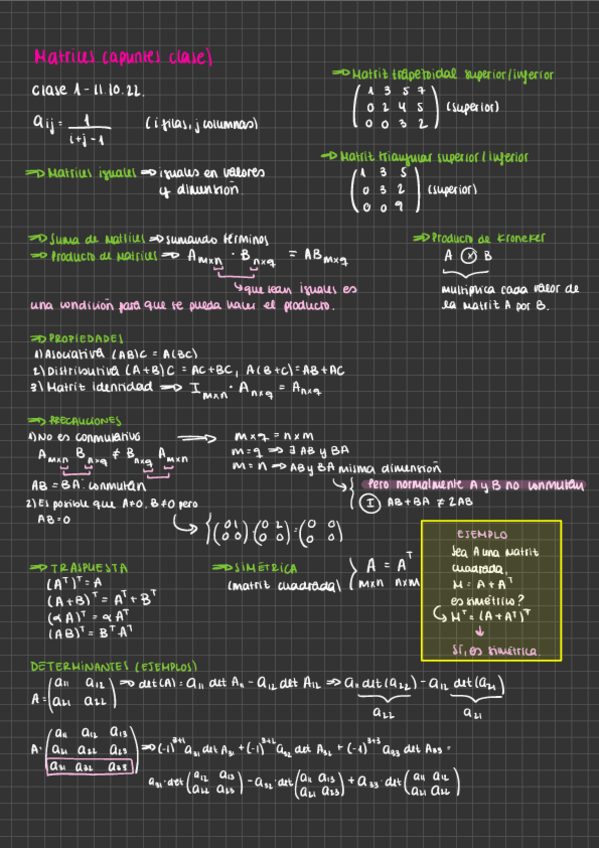 Matrices (apuntes clase)
clase 1 - 11.10.22.
aij = 1 / i+j-1 (i filas, j columnas)
⇒ Matriz trapezoidal superior/inferior
( 1 3 5 7
0 2 4 5
0 0 3 2 ) (superior)
⇒ Matrices iguales ⇒ iguales en valores
y dimensión.
⇒ Matriz triangular superior / inferior
( 1 3 5
0 3 2
0 0 9 ) (superior)
⇒ Suma de matrices ⇒ sumando términos
⇒ Producto de matrices ⇒ Amxn · Bnxq = ABmxq
↳ que sean iguales es
una condición para que se pueda hacer el producto.
⇒ Producto de Kroneker
A ⊗ B
multiplica cada valor de
la matriz A por B.
⇒ PROPIEDADES
1) Asociativa (AB)C = A(BC)
2) Distributiva (A+B)C = AC+BC, A(B+C)=AB+AC
3) Matriz identidad ⇒ Imxn · Anxq = Anxq
⇒ PRECAUCIONES
1) No es conmutativo ⇒ mxq = nxm
Amxn Bnxq ≠ Bnxq Amxn
m=q ⇒ ∃ AB y BA
m=n ⇒ AB y BA misma dimensión
AB = BA: conmutan
↳ { pero normalmente A y B no conmutan
① AB+BA ≠ 2AB
2) Es posible que A≠0, B≠0 pero
AB=0
↳ { (0 1
0 0) (0 2
0 0) = (0 0
0 0)
⇒ TRASPUESTA
(Aᵀ)ᵀ = A
(A+B)ᵀ = Aᵀ + Bᵀ
(αA)ᵀ = αAᵀ
(AB)ᵀ = BᵀAᵀ
⇒ SIMÉTRICA
(matriz cuadrada)
} A = Aᵀ
mxn nxm
EJEMPLO
Sea A una matriz
cuadrada.
M = A + Aᵀ
es simétrico?
↳ Mᵀ = (A+Aᵀ)ᵀ
↓
Sí, es simétrica.
DETERMINANTES (EJEMPLOS)
A = (a11 a12
a21 a22) ⇒ det(A) = a11 det A11 - a12 det A12 ⇒ a11 det(a22) - a12 det(a21)
a22 a21
A = (a11 a12 a13
a21 a22 a23
a31 a32 a33) ⇒ (-1)³⁺¹ a31 det A31 + (-1)³⁺² a32 det A32 + (-1)³⁺³ a33 det A33 =
a31·det(a12 a13
a22 a23) - a32·det(a11 a13
a21 a23) + a33·det(a11 a12
a21 a22)